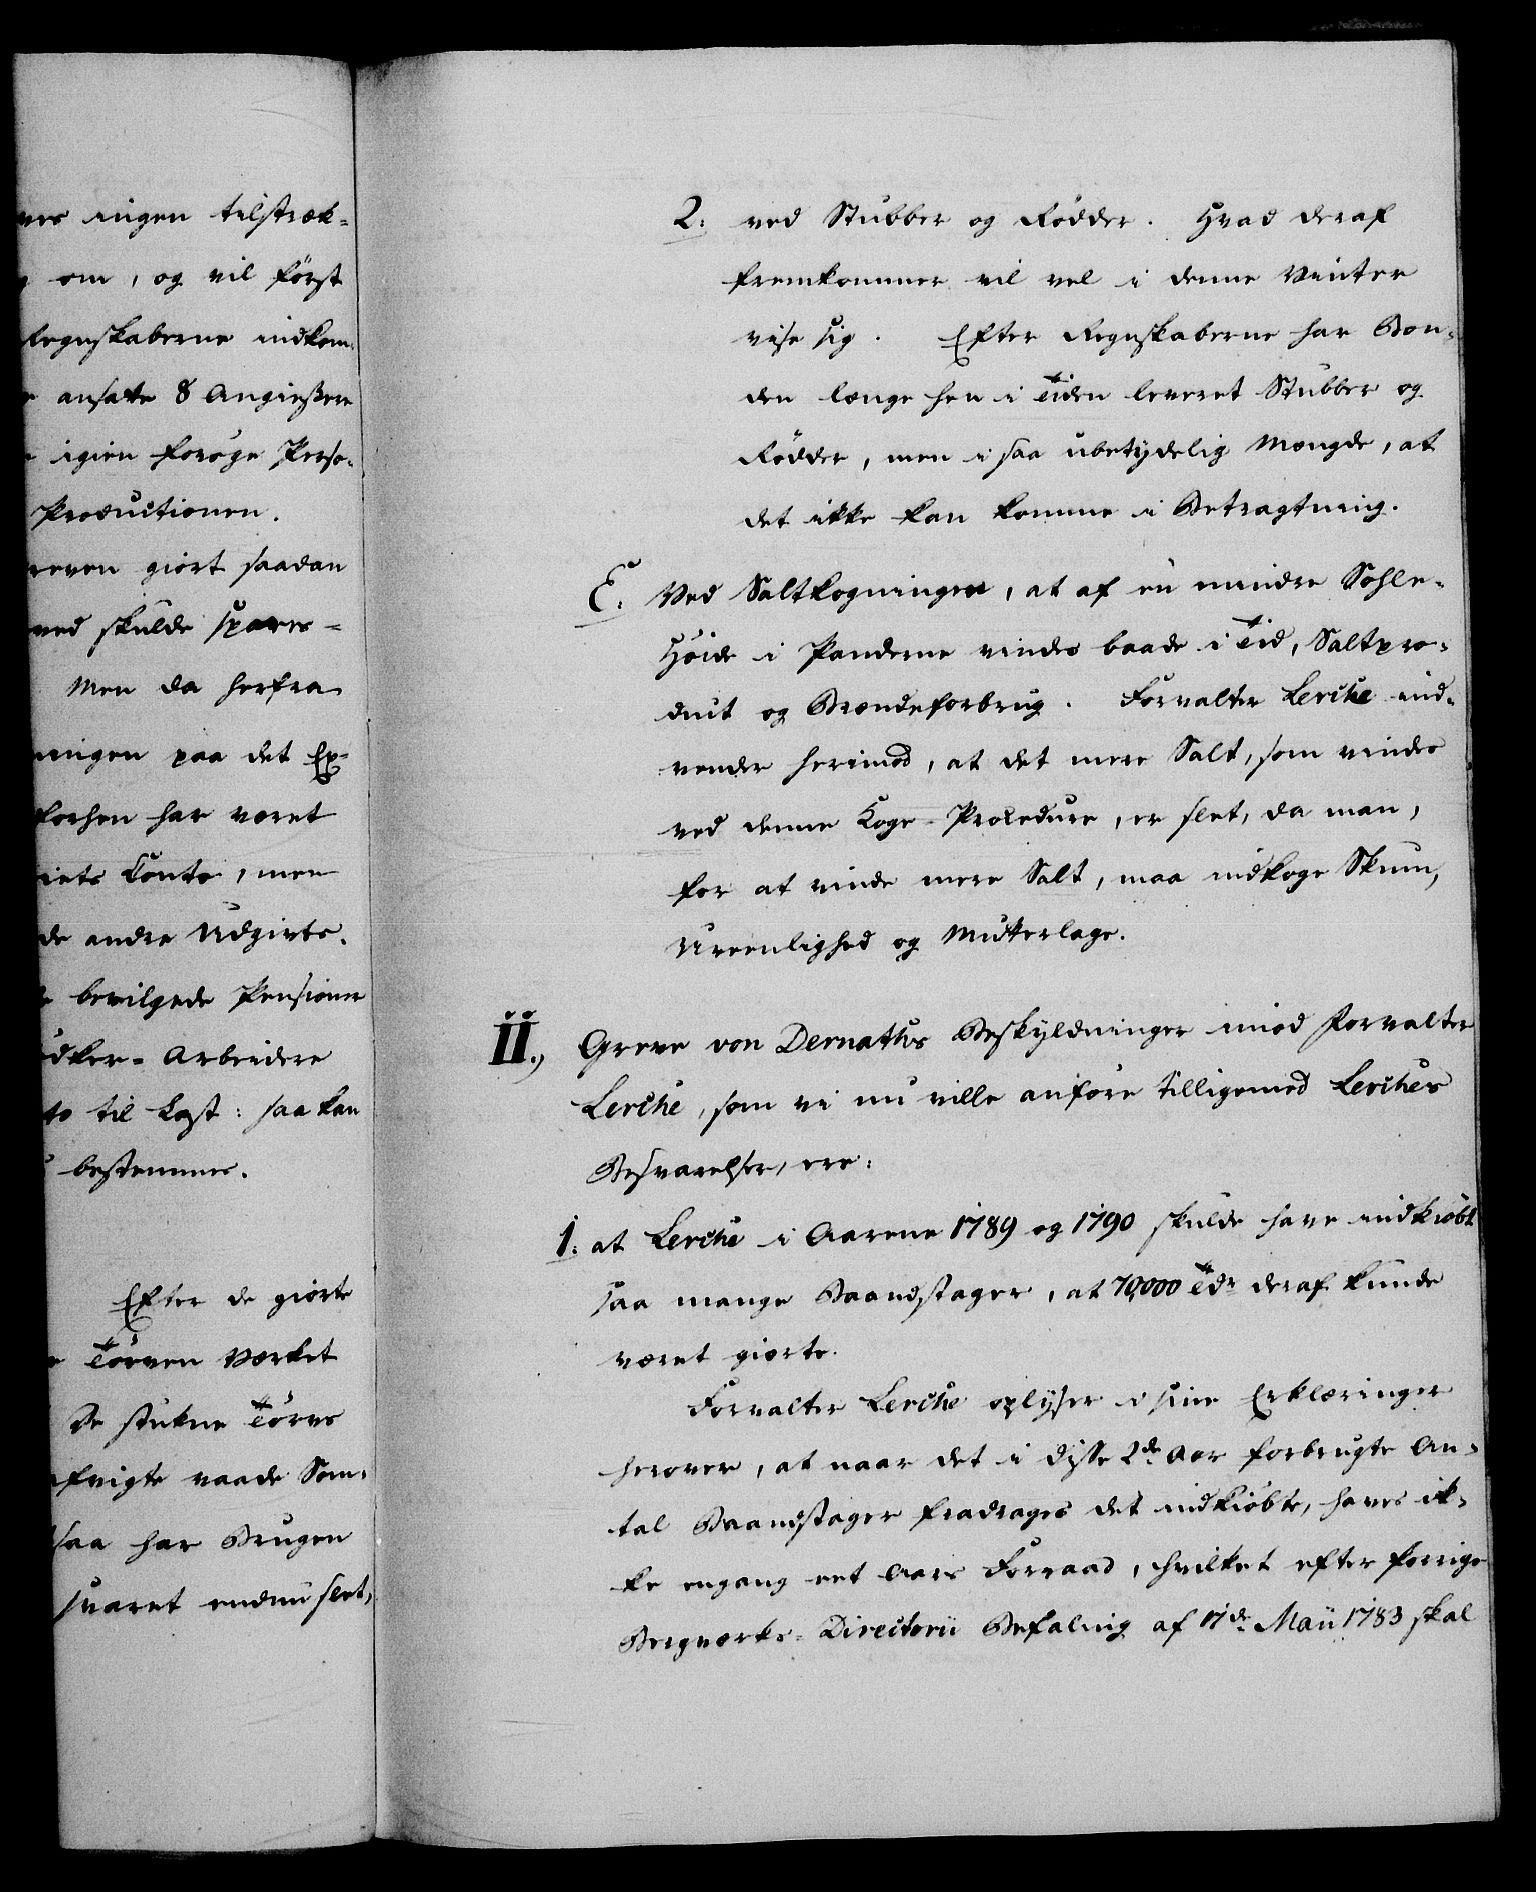 ingen tilstræk-
om, og vil först
Regnskaberne indkom-
ansatte 8 Angiessere
igien foröge Perso-
Productionen.
giort saadan
ved skulde spares -
Men da herfra
ningen paa det Ex-
forhen har været
Conto, men
de andre Udgivts-
bevilgede Pensioner
Arbeidere
til Last: saa kan
bestemmes.
Efter de giorte
Törven Værket
De stukne Törvs
vaade Som-
saa har Brugen
svaret endnu slet,
2. ved Stubber og Rödder. Hvad deraf
fremkommer vil vel i denne Vinter
vise sig. Efter Regnskaberne har Bon-
den længe hen i Tiden leveret Stubber og
Rödder, men i saa ubetydelig Mængde, at
det ikke kan komme i Betragtning.
C. Ved Saltkogningen, at af en mindre Sohle-
Höide i Panderne vindes baade i Tid, Saltpro-
duct og Brændeforbrug. Forvalter Lerche ind-
vender herimod, at det mere Salt, som vindes
ved denne Koge-Procedure, er slet, da man,
for at vinde mere Salt, maa indkoge Skum,
Ureenlighed og Mutterlage.
II., Greve von Dernathes Beskyldninger imod Forvalter
Lerche, som vi nu ville anföre tilligemed Lerches
Besvarelser, ere:
1. at Lerche i Aarene 1789 og 1790 skulde have indkiöbt
saa mange Baandstager, at 70,000 Tdr deraf kunde
været giorte.
Forvalter Lerche oplyser i sine Erklæringer
herover, at naar det i disse 2de Aar forbrugte An-
tal Baandstager fradrages det indkiöbte, haves ik-
ke engang eet Aars Forraad, hvilket efter forrige
Bergværks-Directorii Befaling af 17de Maii 1783 skal